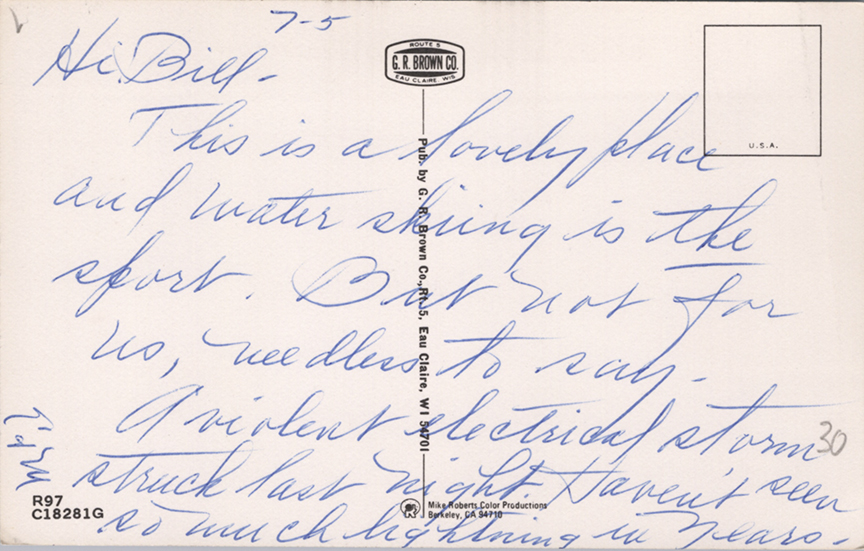 7-5
Hi Bill -
This is a lovely place
and water skiing is the
sport. But not for
us, needless to say.
A violent electrical storm
struck last night. Haven't seen
so much lightning in years.
30
ROUTE 5
G. R. BROWN CO.
EAU CLAIRE, WIS
Pub. by G. R. Brown Co., Rt. 5, Eau Claire, WI 54701
U.S.A.
R97
C18281G
Mike Roberts Color Productions
Berkeley, CA 94710